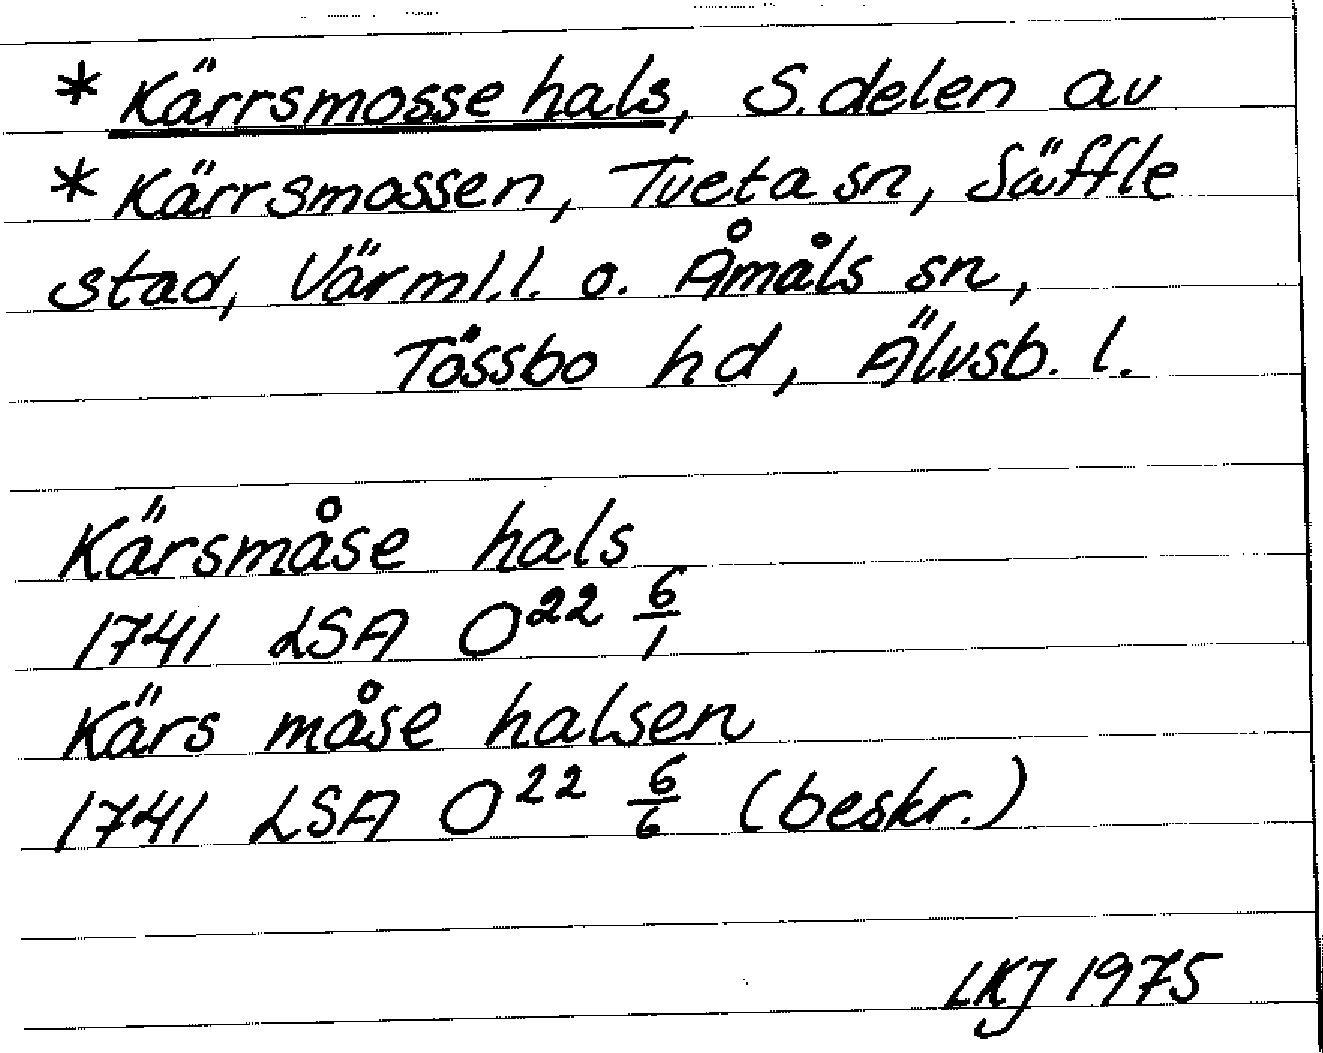 * Kärrsmosse hals, S. delen av
* Kärrsmossen, Tveta sn, Säffle
stad, Värml.l. o. Åmåls sn,
Tössbo hd, Älvsb. l.
Kärsmåse hals
1741 LSA O²² 6/1
Kärs måse halsen
1741 LSA O²² 6/6 (beskr.)
LKJ 1975